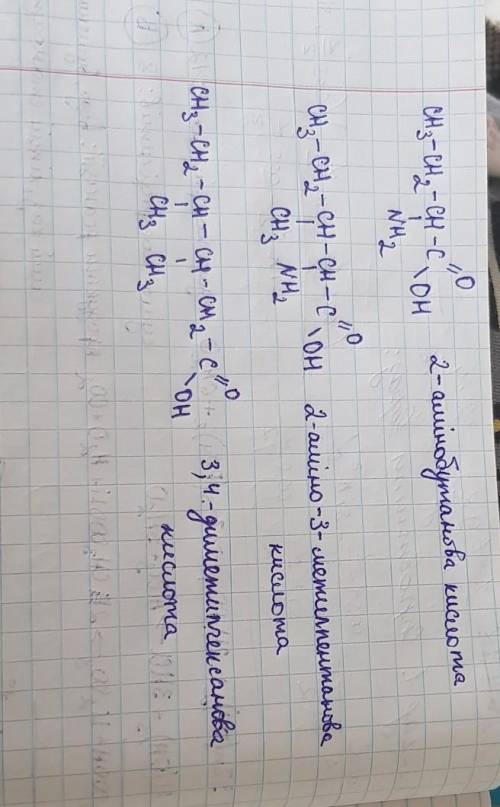 CH₃-CH₂-CH-C=O
NH₂ OH
2-амінобутанова кислота
CH₃-CH₂-CH-CH-C=O
CH₃ NH₂ OH
2-аміно-3-метилпентанова
кислота
CH₃-CH₂-CH-CH-CH₂-C=O
CH₃ CH₃ OH
3,4-диметилгексанова
кислота